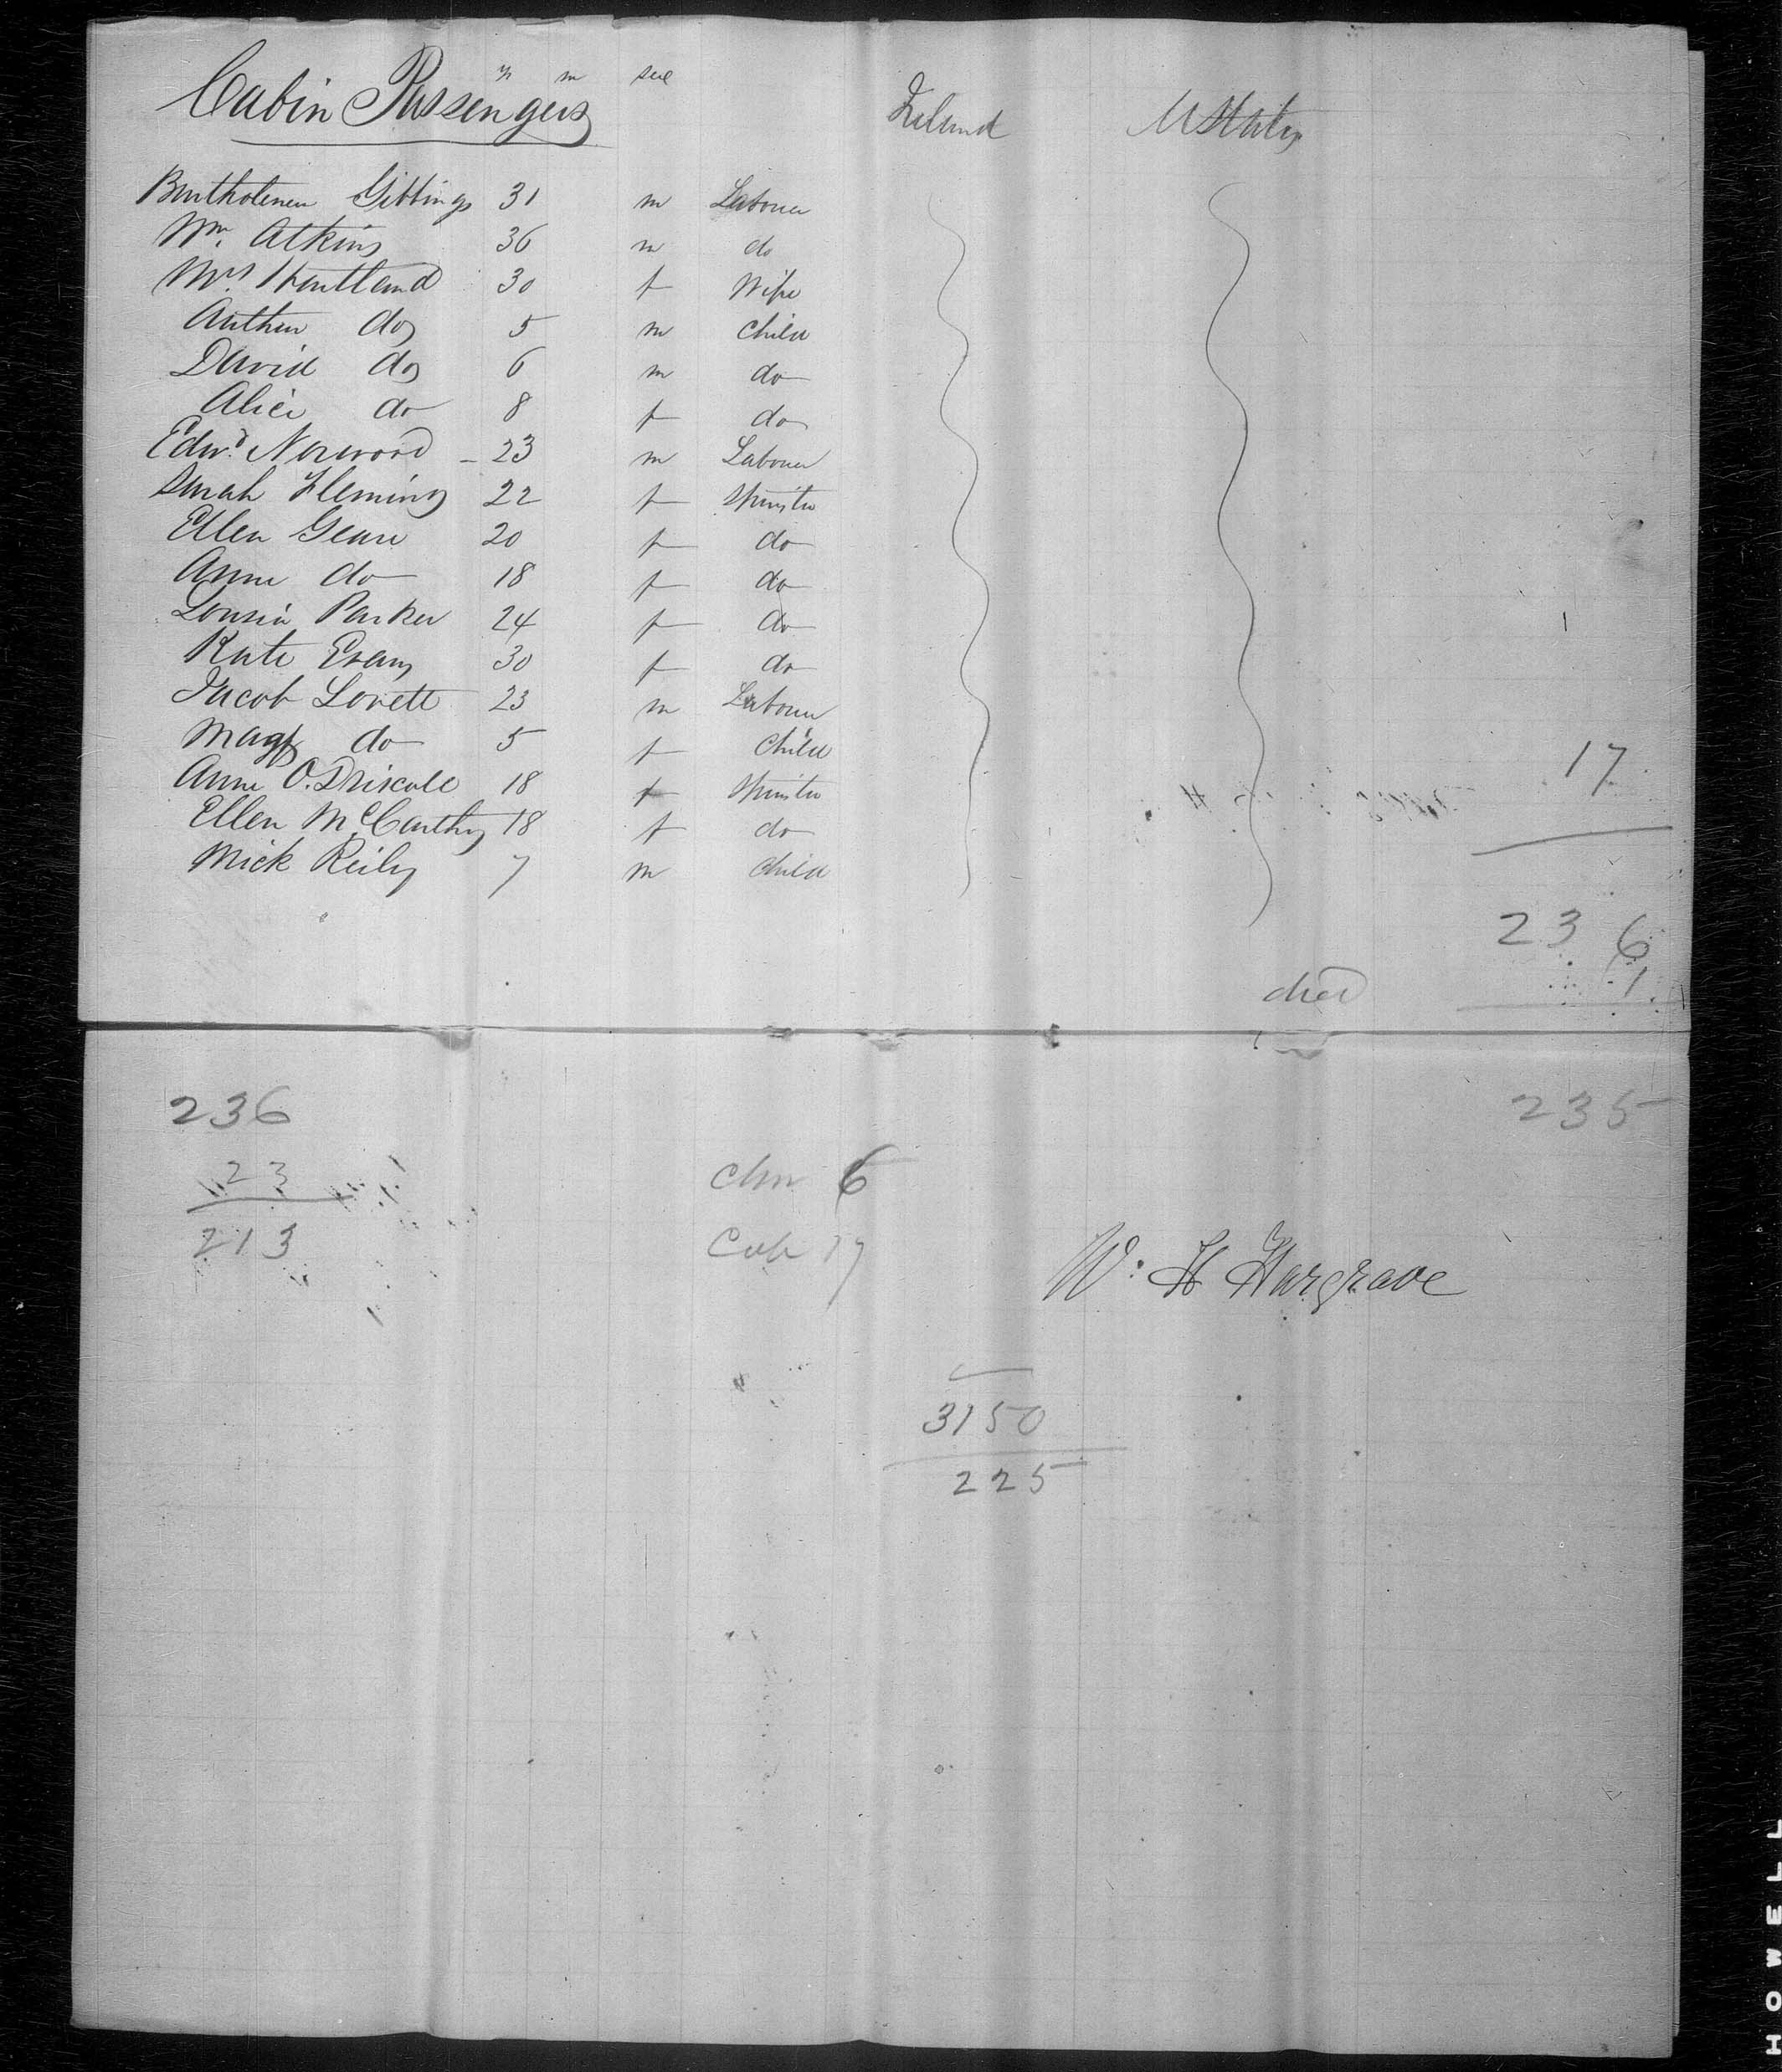 Cabin Passengers y m sex Ireland U States
Bartholomew Gibbings 31 m Labourer
Wm. Atkins 36 m do
Mrs. 30 f Wife
Arthur do 5 m Child
David do 6 m do
Alice do 8 f do
Edwd. Norwood - 23 m Labourer
Sarah Fleming 22 f Spinster
Ellen Geary 20 f do
Anne do 18 f do
Lousia Parker 24 f do
Kate Evans 30 f do
Jacob Lovett 23 m Labourer
Magt do 5 f Child
17
Anne O.Driscoll 18 f Spinster
Ellen McCarthy 18 f do
Mick Reily 7 m Child
236
died 1
236 235
23 Chn 6
213 Cab 17
W. H Hargrave
3150
225
HOWELL